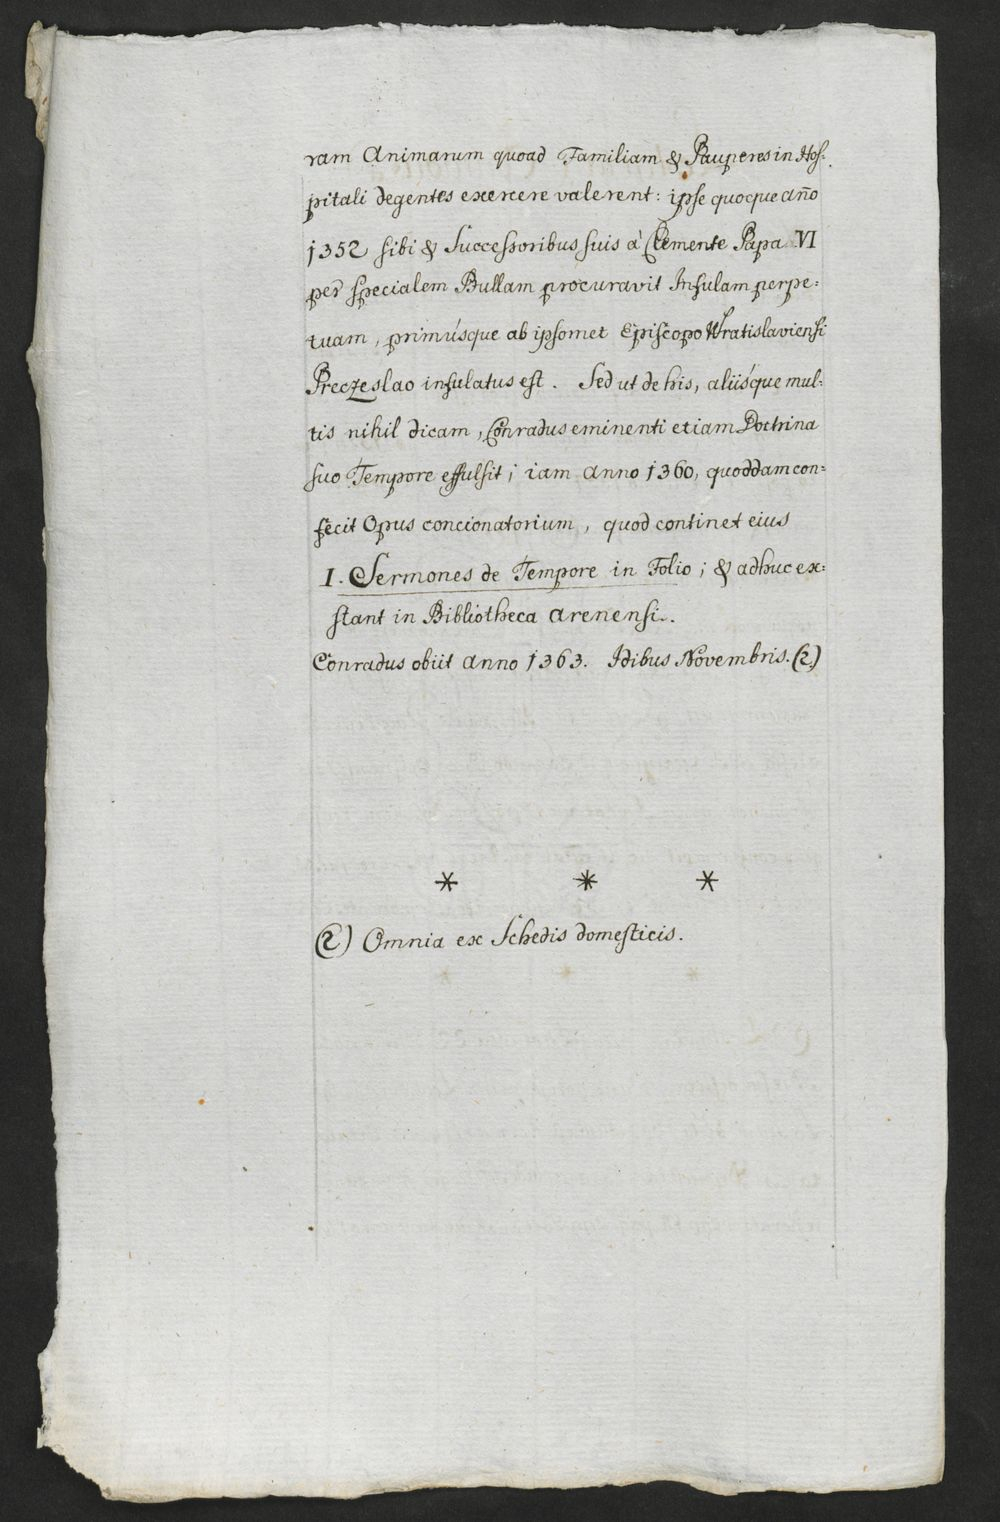 ram Animarum quoad Familiam & Pauperes in Hos-
pitali degentes exercere valerent: ipse quoque año
1352 sibi & Successoribus suis à Clemente Papa VI
per specialem Bullam procuravit Insulam perpe:
tuam, primúsque ab ipsomet Episcopo Wratislaviensi
Preczeslao insulatus est. Sed ut de his, aliisque mul:
tis nihil dicam, Conradus eminenti etiam Doctrina
suo Tempore effulsit; iam Anno 1360, quoddam con=
fecit Opus concionatorium, quod continet eius
I. Sermones de Tempore in Folio; & adhuc ex:
stant in Bibliotheca Arenensi.
Conradus obiit Anno 1363. Idibus Novembris. (2)
* * *
(2) Omnia ex Schedis domesticis.